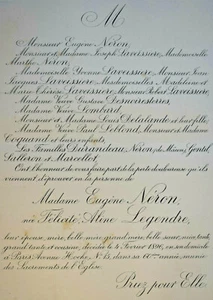 M
Monsieur Eugène Néron,
Monsieur et Madame Joseph Lavoissière, Mademoiselle
Marthe Néron,
Mademoiselle Yvonne Lavoissière, Monsieur Jean
Jacques Lavoissière, Mesdemoiselles Madeleine et
Marie Thérèse Lavoissière, Monsieur Robert Lavoissière,
Madame Veuve Gustave Desnoiresterres,
Madame Veuve Lombard,
Monsieur et Madame Louis Delalande et leur fille,
Madame Veuve Paul Leblond, Monsieur et Madame
Coquand et leurs enfants,
Les Familles Durandeau, Néron, de Miniac, Gentil,
Salleron et Marcellot,
Ont l'honneur de vous faire part de la perte douloureuse qu'ils
viennent d'éprouver en la personne de
Madame Eugène Néron,
née Félicité Aline Legendre,
leur épouse, mère, belle-mère, grand'mère, belle-sœur, tante,
grand'tante et cousine, décédée le 6 Février 1896, en son domicile
à Paris Avenue Hoche, N° 15, dans sa 60ème année, munie
des Sacrements de l'Eglise.
Priez pour Elle